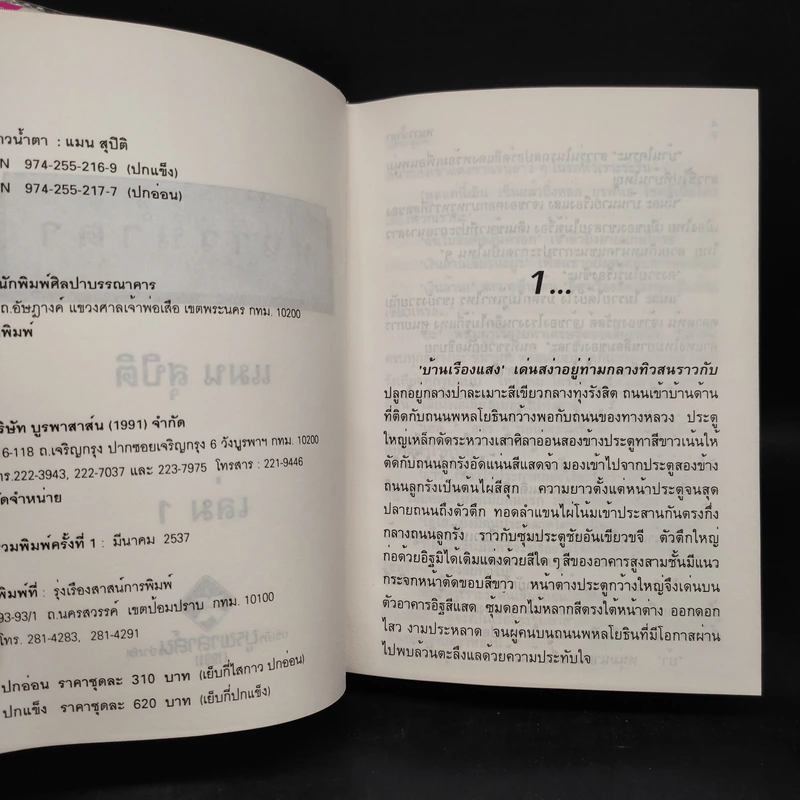 าวน้ำตา : แมน สุปิติ
N 974-255-216-9 (ปกแข็ง)
N 974-255-217-7 (ปกอ่อน)
นักพิมพ์ศิลปาบรรณาคาร
ถ.อัษฎางค์ แขวงศาลเจ้าพ่อเสือ เขตพระนคร กทม. 10200
พิมพ์
ริษัท บูรพาสาส์น (1991) จำกัด
6-118 ถ.เจริญกรุง ปากซอยเจริญกรุง 6 วังบูรพาฯ กทม. 10200
ทร.222-3943, 222-7037 และ 223-7975 โทรสาร : 221-9446
ัดจำหน่าย
วมพิมพ์ครั้งที่ 1 : มีนาคม 2537
พิมพ์ที่ : รุ่งเรืองสาสน์การพิมพ์
93-93/1 ถ.นครสวรรค์ เขตป้อมปราบ กทม. 10100
โทร. 281-4283, 281-4291
ปกอ่อน ราคาชุดละ 310 บาท (เย็บกี่ไสกาว ปกอ่อน)
ปกแข็ง ราคาชุดละ 620 บาท (เย็บกี่ปกแข็ง)
1...
'บ้านเรืองแสง' เด่นสง่าอยู่ท่ามกลางทิวสนราวกับ
ปลูกอยู่กลางป่าละเมาะสีเขียวกลางทุ่งรังสิต ถนนเข้าบ้านด้าน
ที่ติดกับถนนพหลโยธินกว้างพอกับถนนของทางหลวง ประตู
ใหญ่เหล็กดัดระหว่างเสาศิลาอ่อนสองข้างประตูทาสีขาวเน้นให้
ตัดกับถนนลูกรังอัดแน่นสีแสดจ้า มองเข้าไปจากประตูสองข้าง
ถนนลูกรังเป็นต้นไผ่สีสุก ความยาวตั้งแต่หน้าประตูจนสุด
ปลายถนนถึงตัวตึก ทอดลำแขนไผ่โน้มเข้าประสานกันตรงกึ่ง
กลางถนนลูกรัง ราวกับซุ้มประตูชัยอันเขียวขจี ตัวตึกใหญ่
ก่อด้วยอิฐมิได้เติมแต่งด้วยสีใด ๆ สีของอาคารสูงสามชั้นมีแนว
กระจกหน้าตัดขอบสีขาว หน้าต่างประตูกว้างใหญ่จึงเด่นบน
ตัวอาคารอิฐสีแสด ซุ้มดอกไม้หลากสีตรงใต้หน้าต่าง ออกดอก
ไสว งามประหลาด จนผู้คนบนถนนพหลโยธินที่มีโอกาสผ่าน
ไปพบล้วนตะลึงแลด้วยความประทับใจ